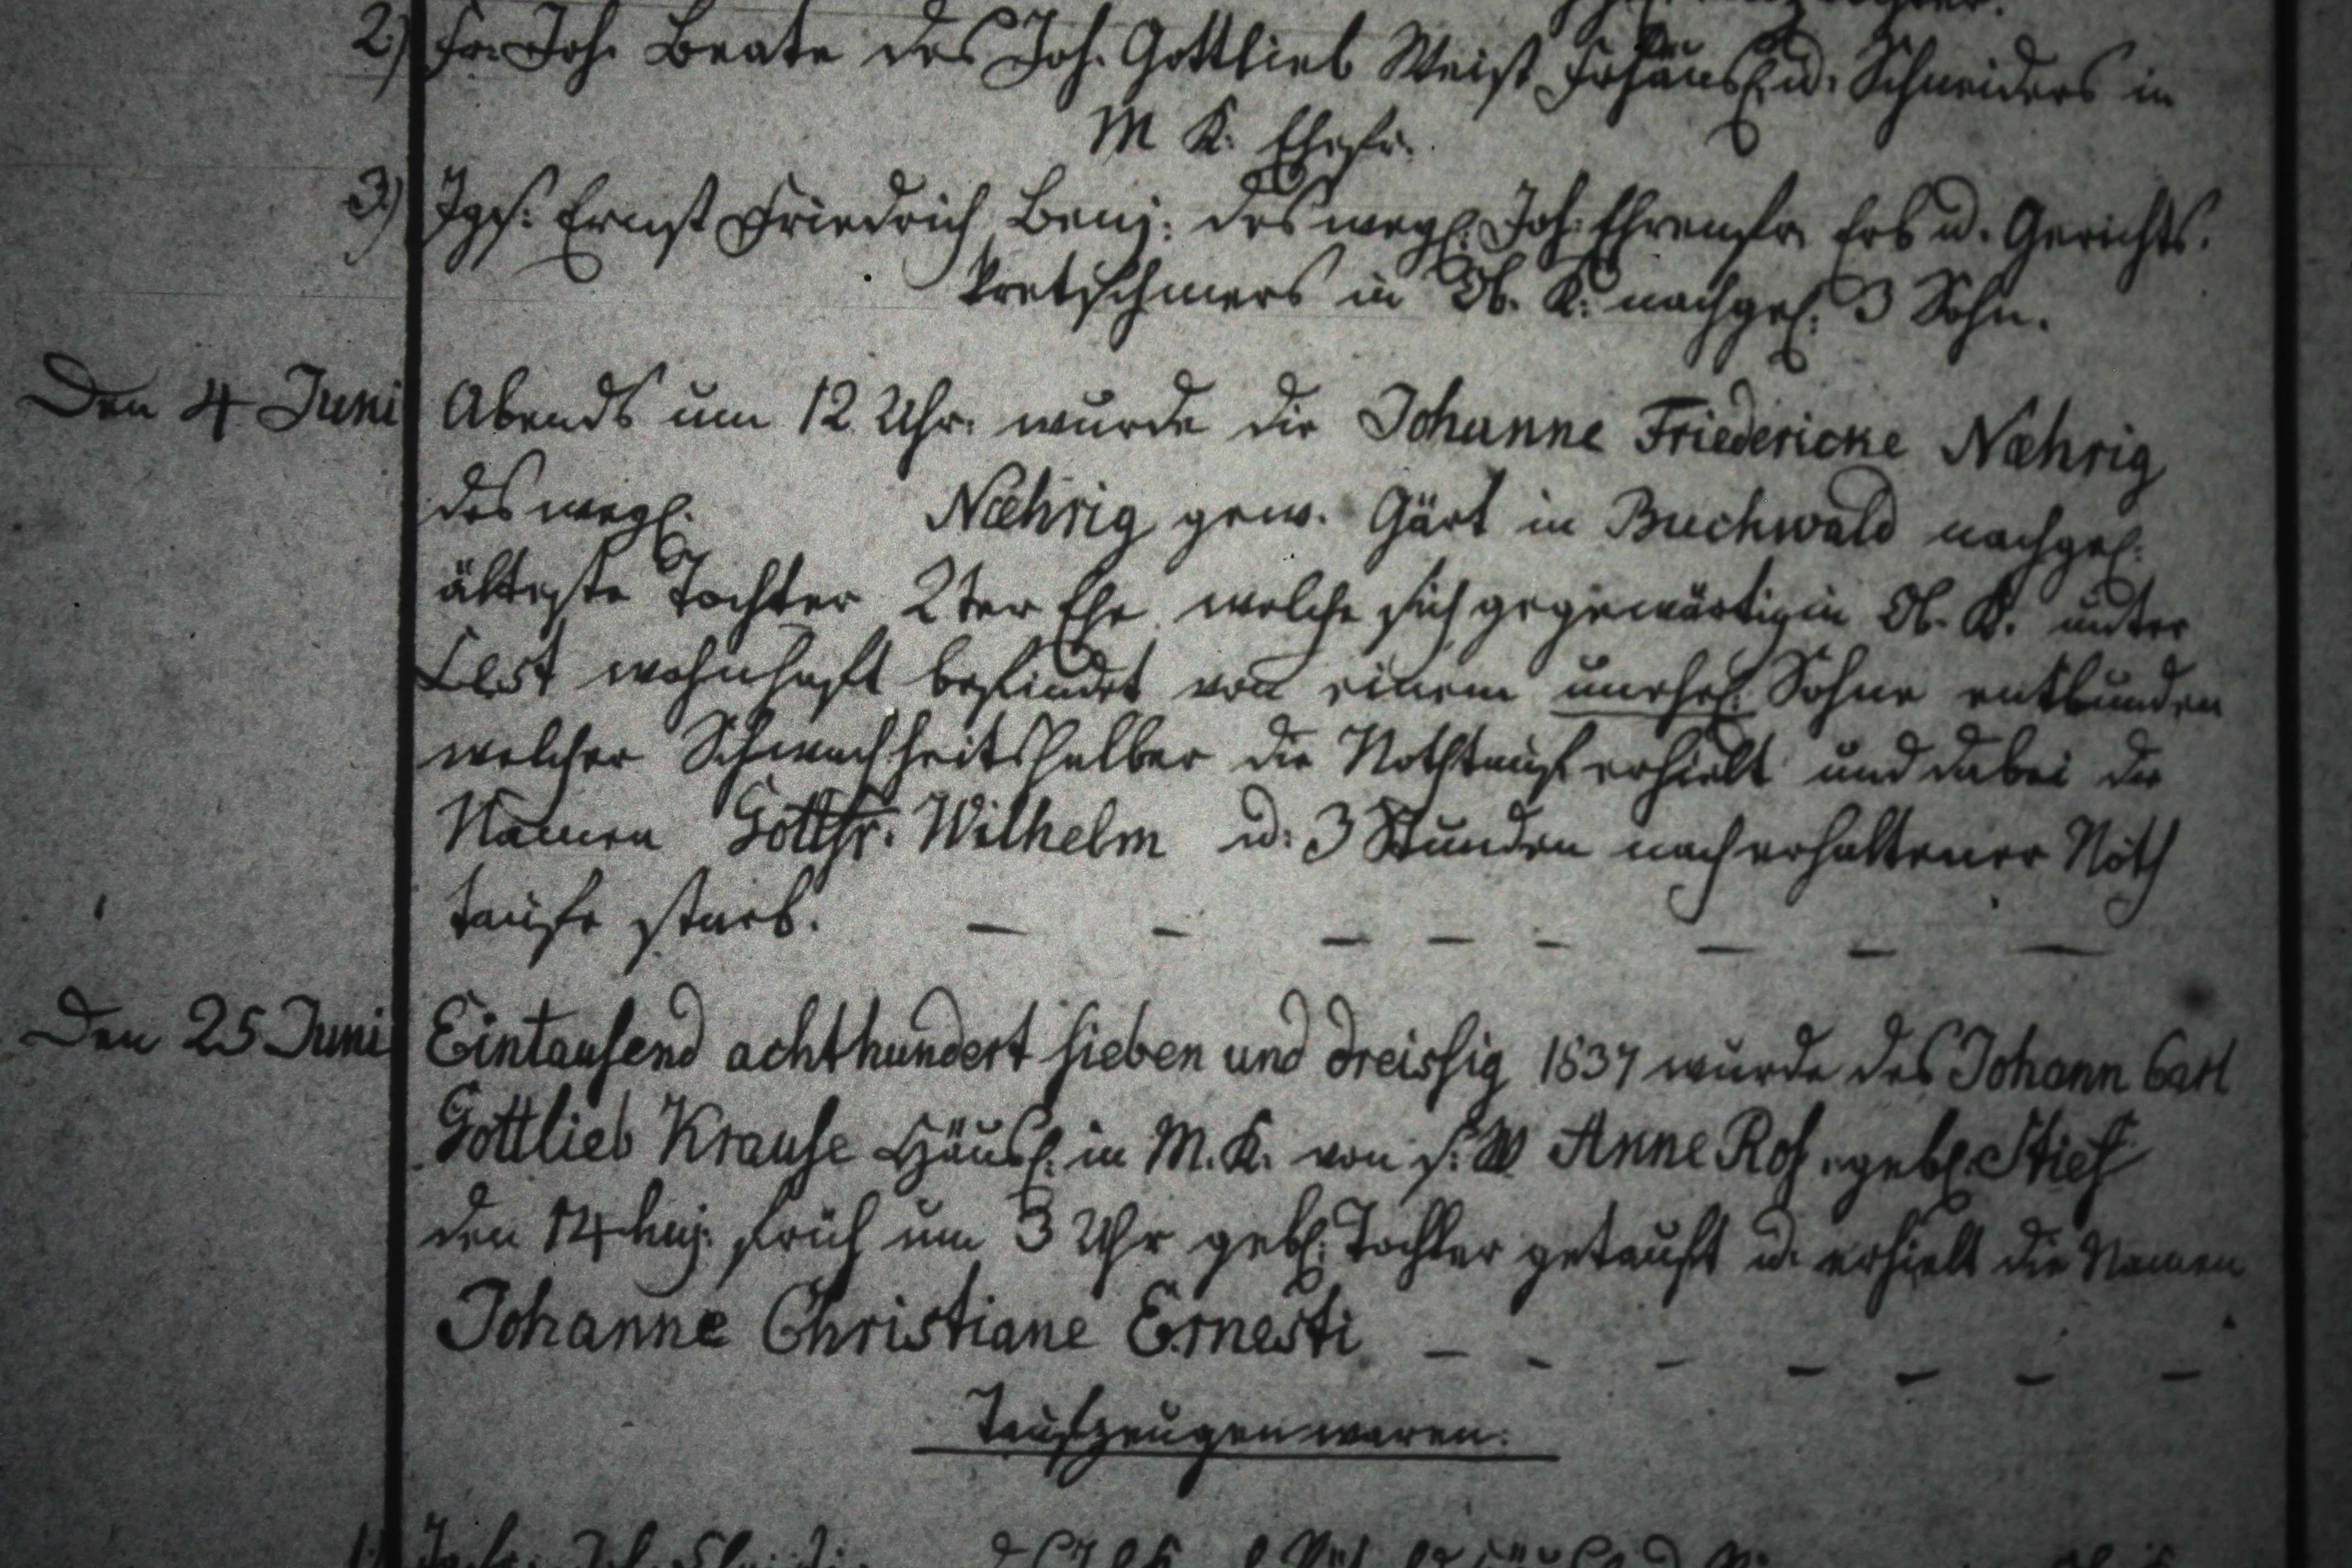 2.) Fr. Joh. Beate des Joh. Gottlieb Weist Frhäusl. u. Schneiders in
M K. Ehefr.
3.) Jgs. Ernst Friedrich Benj. des wegl. Joh. Ehrenfr. Erb u. Gerichts.
kretschmers in Ob. K. nachgel. 3 Sohn.
Den 4 Juni Abends um 12 Uhr. wurde die Johanne Friedericke Næhrig
des wegl. Næhrig gew. Gärt in Buchwald nachgel.
älteste Tochter 2ter Ehe welche sich gegenwärtig in Ob. K. unter
wohnhaft befindet von einem unehel. Sohne entbunden
welcher Schwachheitshalber die Nothtauf erhielt und dabei die
Namen Gottfr. Wilhelm u. 3 Stunden nach erhaltener Noth
taufe starb. — — — — — — — —
Den 25 Juni Eintausend achthundert sieben und dreissig 1837 wurde des Johann Carl
Gottlieb Krause Häusl. in M. K. von s. W Anne Ros. gebl. Stief
den 14 huj. früh um 3 Uhr gebl. Tochter getauft u. erhielt die Namen
Johanne Christiane Ernesti — — — — — — —
Taufzeugen waren.